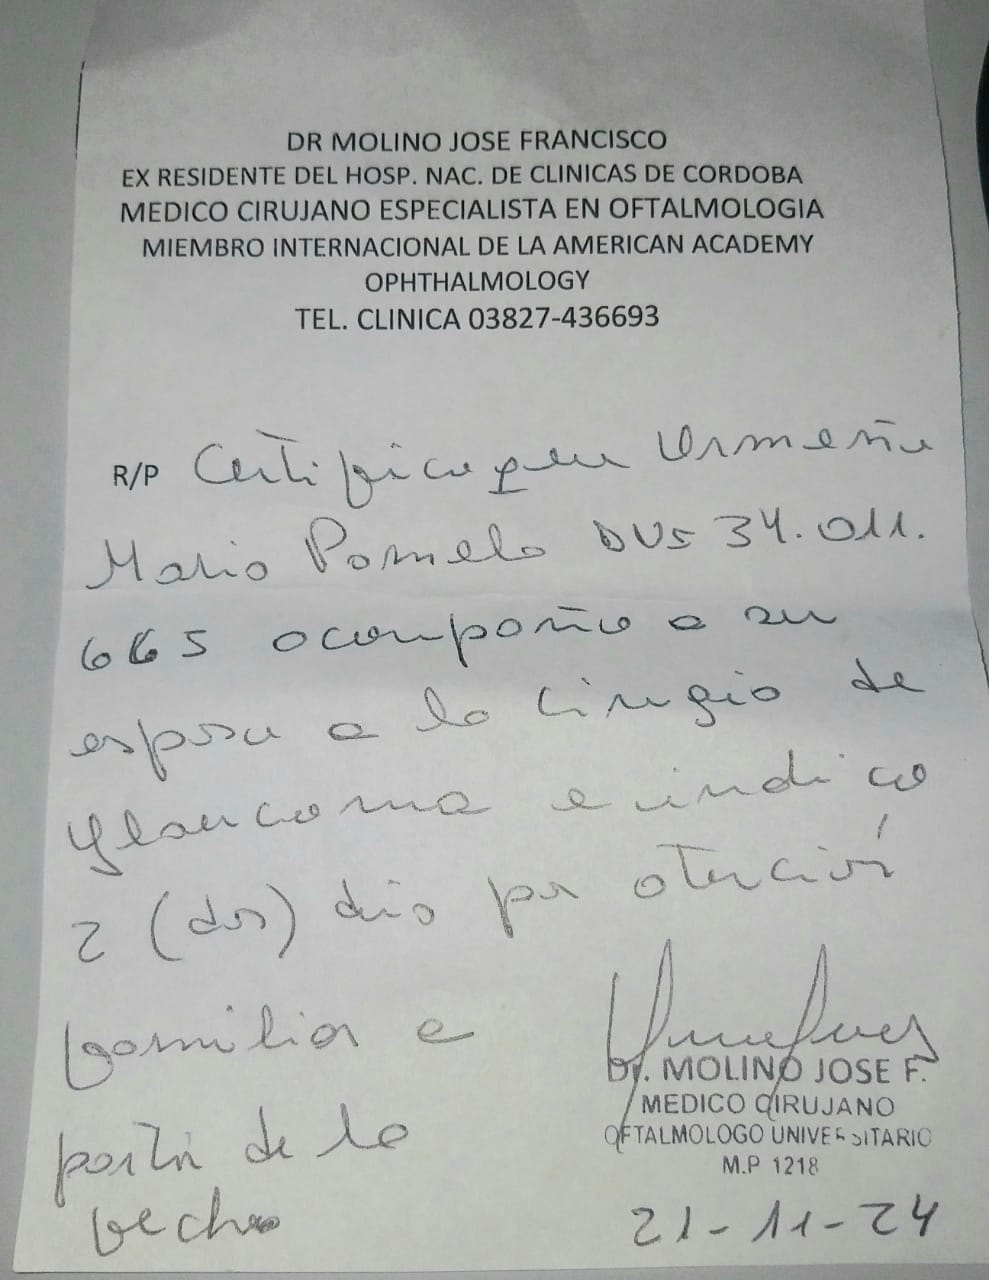 DR MOLINO JOSE FRANCISCO
EX RESIDENTE DEL HOSP. NAC. DE CLINICAS DE CORDOBA
MEDICO CIRUJANO ESPECIALISTA EN OFTALMOLOGIA
MIEMBRO INTERNACIONAL DE LA AMERICAN ACADEMY
OPHTHALMOLOGY
TEL. CLINICA 03827-436693
R/P Certifico que
Mario 34.011.
665 acompaño a su
esposa a la cirugia de
glaucoma e indico
2 (dos) dias por atención
familiar a
partir de la
fecha
Dr. MOLINO JOSE F.
MEDICO CIRUJANO
OFTALMOLOGO UNIVERSITARIO
M.P 1218
21-11-24